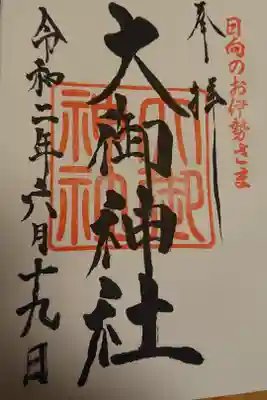 日向のお伊勢さま
奉拝
大御神社
大御神社
令和二年六月十九日